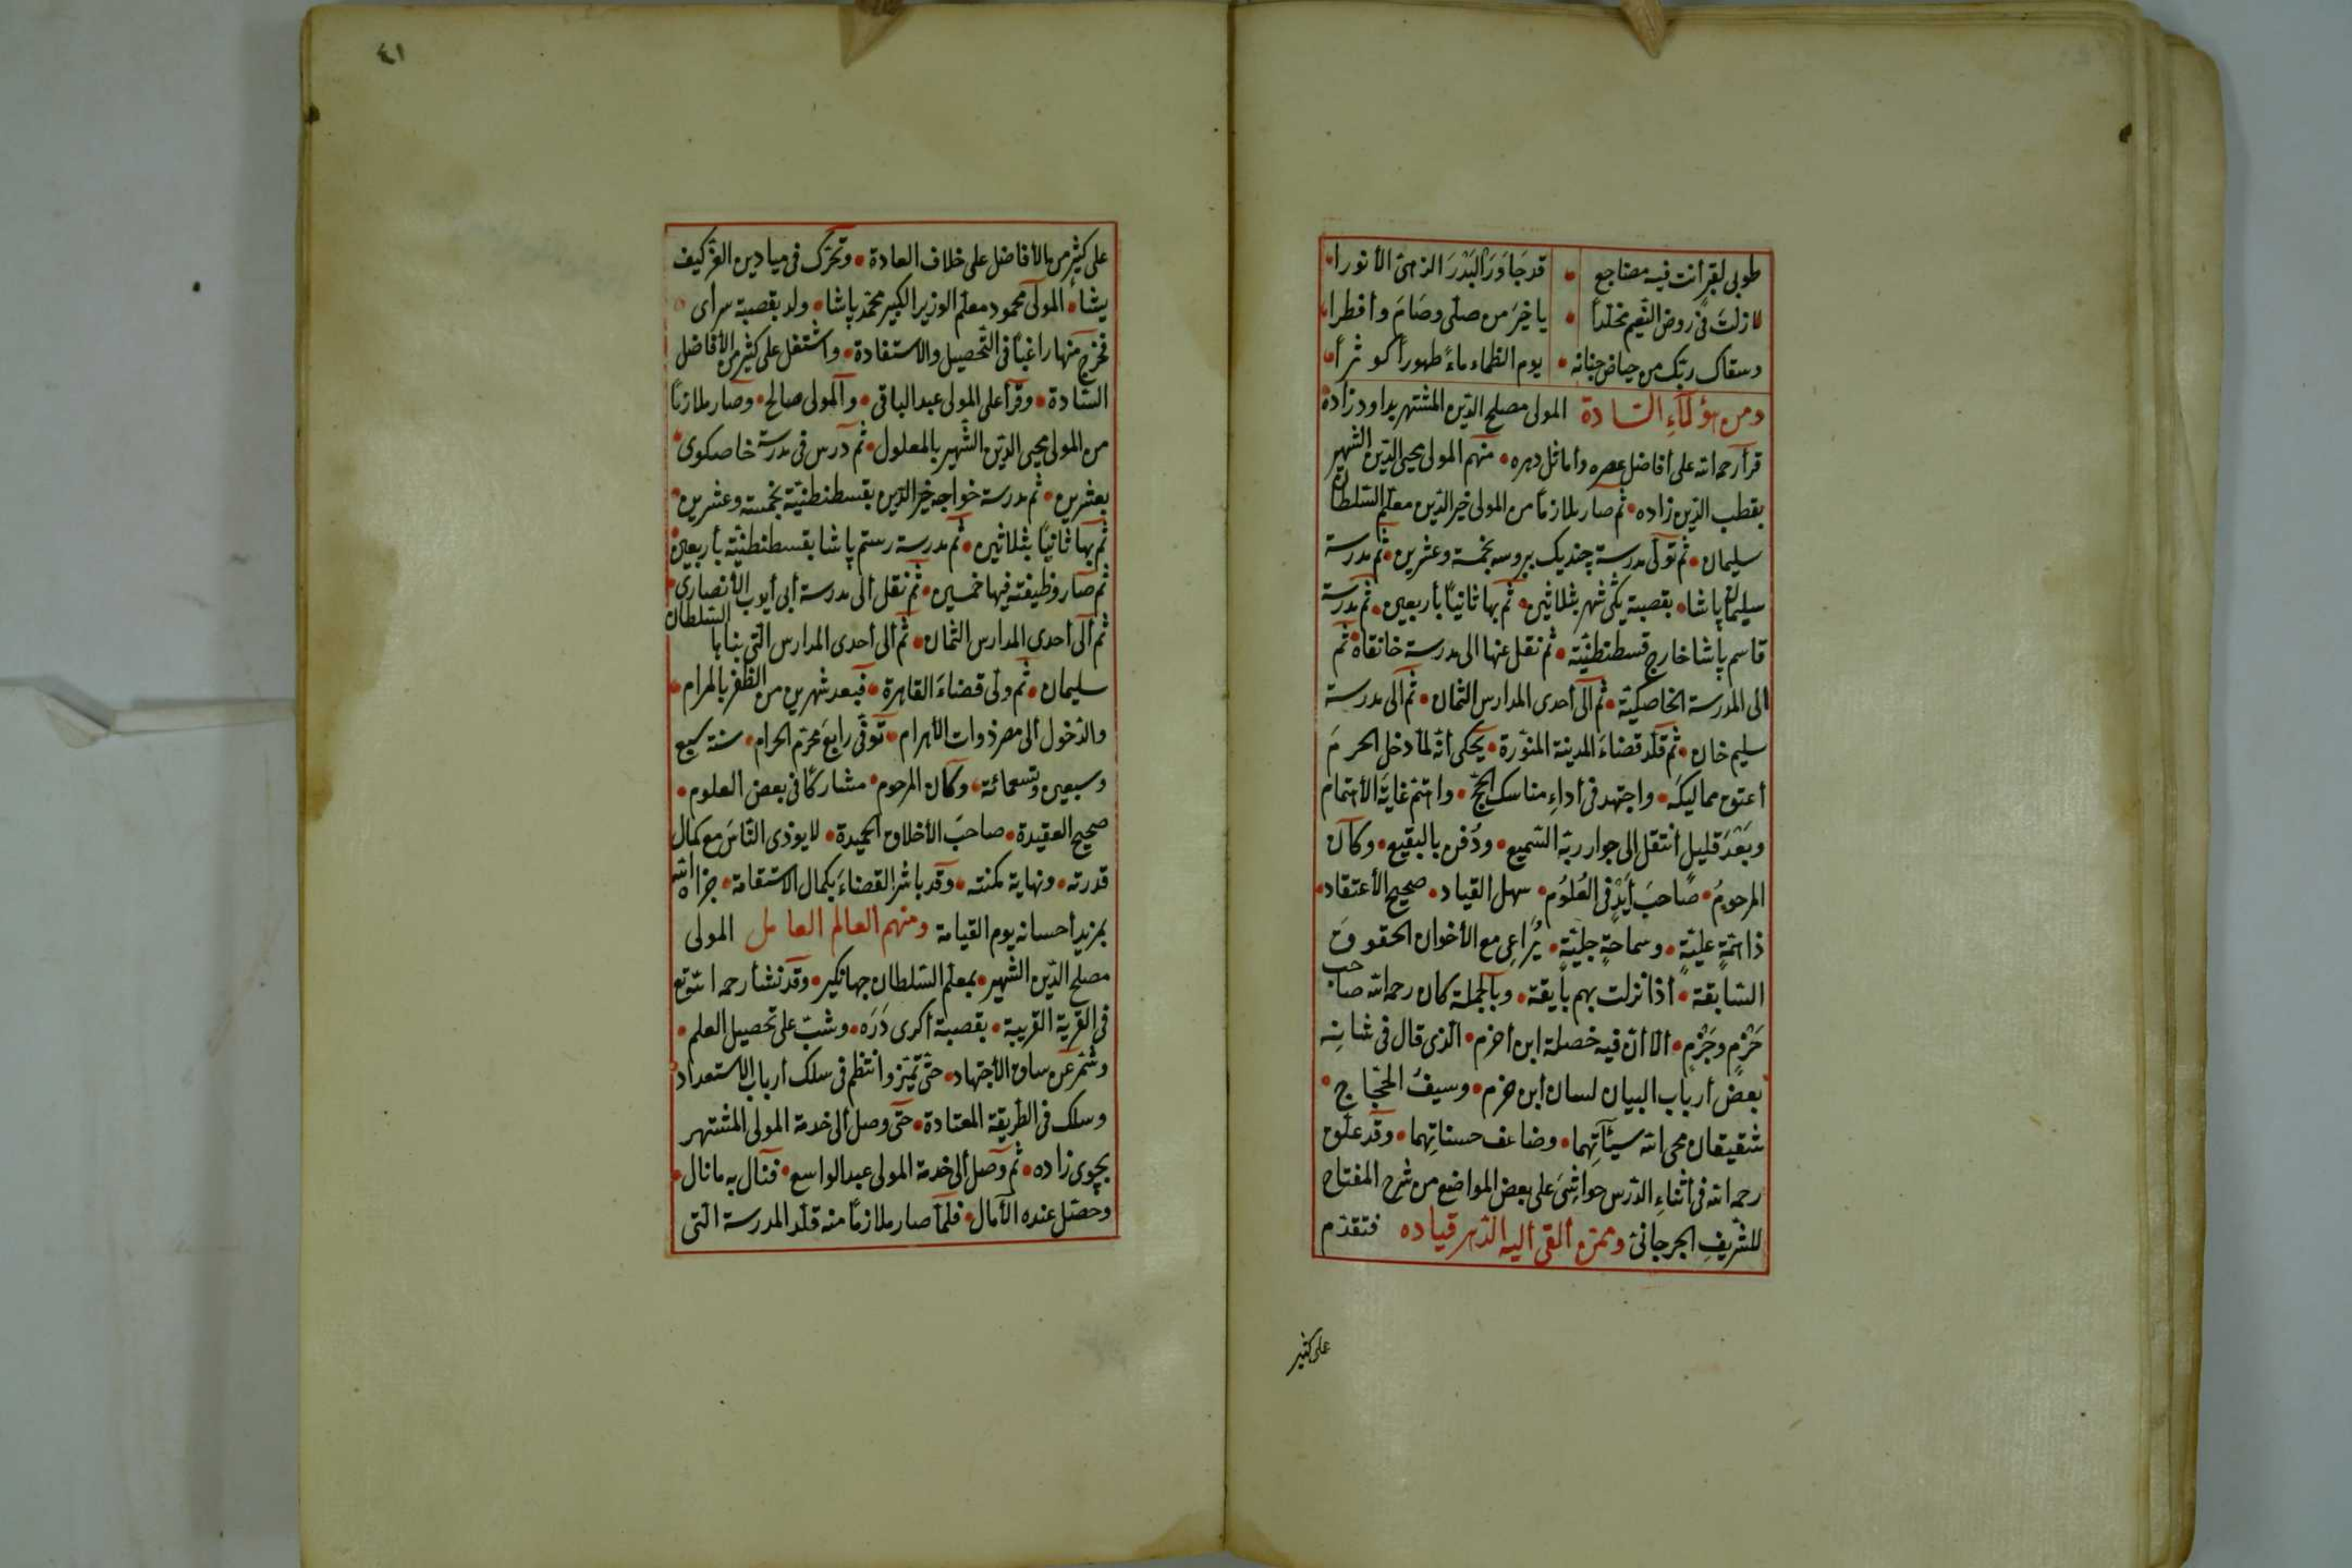 طوبى لقبر أنت فيه مضاجع • قد جَاوَرَ البَدْرَ الزهىّ الأنورا •
لا زلتَ فى روض النّعيم مخلّداً • يا خيرَ من صلّى وصَامَ وأفطرا •
وسقاك ربّك من حياض جنانه • يوم الظماء ماءً طهوراً كوثراً •
ومن هؤلآءِ السّادة المولى مصلح الدّين المشتهر بداود زاده
قرأ رحمه الله على أفاضل عصره وأماثل دهره • منهم المولى محيى الدّين الشهير
بقطب الدّين زاده • ثم صار ملازماً من المولى خير الدّين معلّم السّلطان
سليمان • ثم تولّى مدرسة جنديك ببروسه بخمسة وعشرين • ثمّ مدرسة
سليمان پاشا • بقصبة يكى شهر بثلاثين • ثم بها ثانياً بأربعين • ثم مدرسة
قاسم پاشا خارج قسطنطنيّة • ثم نقل عنها الى مدرسة خانقاه • ثم
الى المدرسة الخاصكيّة • ثم الى أحدى المدارس الثمان • ثم الى مدرسة
سليم خان • ثم قلّد قضاءَ المدينة المنوّرة • يحكى أنّه لمّا دخل الحرمَ
أعتق مماليكَه • واجتهد فى أداءِ مناسك الحجّ • واهتمّ غايةَ الأهتمام
وبَعْدَ قليلٍ أنتقل الى جوار ربّه السّميع • ودُفن بالبقيع • وكان
المرحومُ • صَاحبَ أيدٍ فى العُلوُم • سهل القياد • صحيح الأعتقاد •
ذا همّةٍ عليّةٍ • وسماحةٍ جليّةٍ • يُرَاعِى مع الأخوان الحقوقَ
السّابقة • أذا نزلت بهم بايقة • وبالجملة كان رحمه الله صاحب
حَزْمٍ وجَزْمٍ • الاّ أنّ فيه خصلة ابن أخزم • الّذى قال فى شانِه
بعض أرباب البيان لسان أبن حزم • وسيفُ الحجّاج •
شقيقان محى الله سيّآتِهما • وضاعف حسناتِهما • وقد علّق
رحمه الله فى أثناءِ الدّرس حواشِىَ على بعض المواضع من شرح المفتاح
للشّريفِ الجرجانىّ وممّن ألقى أليه الدّهر قياده فتقدّم
على كثير
٤١
على كثير من الأفاضل على خلاف العادة • وتحرّك فى ميادين العزّ كيف
يشاء • المولى محمود معلّم الوزير الكبير محمّد پاشا • ولد بقصبة سراى
فخرج منها راغباً فى التّحصيل والاستفادة • واشتغل على كثير من الأفاضل
السّادة • وقرأ على المولى عبد الباقى • والمولى صالح • وصار ملازماً
من المولى محيى الدّين الشّهير بالمعلول • ثم درّس فى مدرسة خاصكوى •
بعشرين • ثم مدرسة خواجه خير الدّين بقسطنطنيّة بخمسة وعشرين •
ثم بها ثانياً بثلاثين • ثم مدرسة رستم پاشا بقسطنطنيّة بأربعين •
ثم صار وظيفته فيها خمسين • ثم نقل ألى مدرسة أبى أيوب الأنصارى •
ثم ألى أحدى المدارس الثّمان • ثم ألى أحدى المدارس الّتى بناها السّلطان
سليمان • ثم ولّى قضاءَ القاهرة • فبعد شهرين من الظّفر بالمرام •
والدّخول ألى مصر ذوات الأهرام • توفّى رابعَ محرّم الحرام • سنة سبع
وسبعين وتسعمائة • وكان المرحوم • مشاركاً فى بعض العلوم •
صحيح العقيدة • صاحبَ الأخلاق الحميدة • لا يوذى النّاسَ مع كمال
قدرته • ونهاية مكنته • وقد باشر القضاءَ بكمال الاستقامة • جزاه الله
بمزيد أحسانه يوم القيامة ومنهم العالم العامل المولى
مصلح الدّين الشهير • بمعلّم السّلطان جهانكير • وقد نشأ رحمه الله تع
فى القرية القريبة • بقصبة أكرى دَرَه • وشبّ على تحصيل العلم •
وشمّر عن ساق الأجتهاد • حتّى تميّز وانتظم فى سلك أرباب الاستعداد
وسلك فى الطّريقة المعتادة • حتّى وصل ألى خدمة المولى المشتهر
بجوى زاده • ثم وصل ألى خدمة المولى عبد الواسع • فنال به ما نال •
وحصّل عنده الآمال • فلمّا صار ملازماً منه قلّد المدرسة الّتى